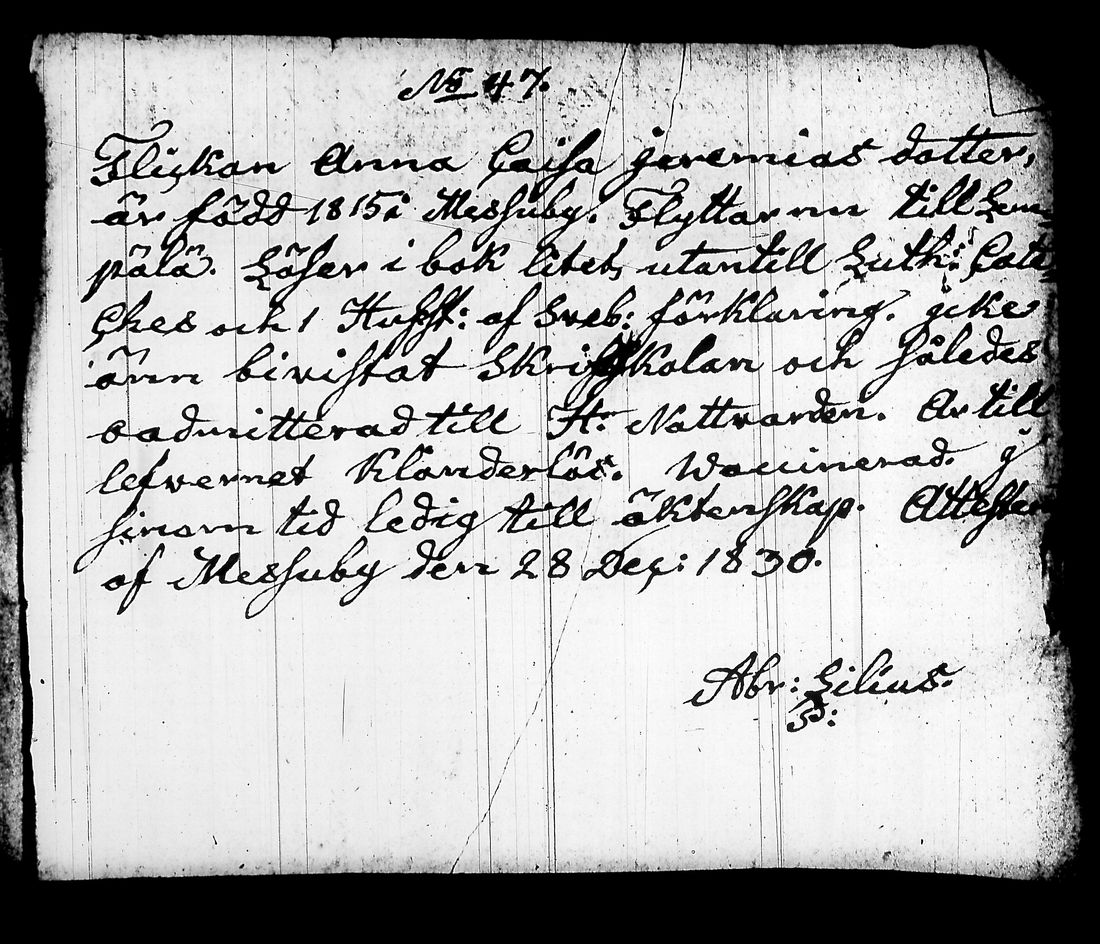 No 47.
Flickan Anna Cajsa Jeremias dotter,
är född 1815 i Messuby. Flyttar nu till Lem-
pälä. Läser i bok litet, utantill Luth: Cate
ches och 1 Hufst: af Sveb: förklaring. Icke
änn bivistat Skriftskolan och således
oadmitterad till H. Nattvarden. Är till
lefvernet Klanderlös. Waccinerad. I
sinom tid ledig till äktenskap. Attester
af Messuby den 28 Dec: 1830.
Abr: Lilius.
P: